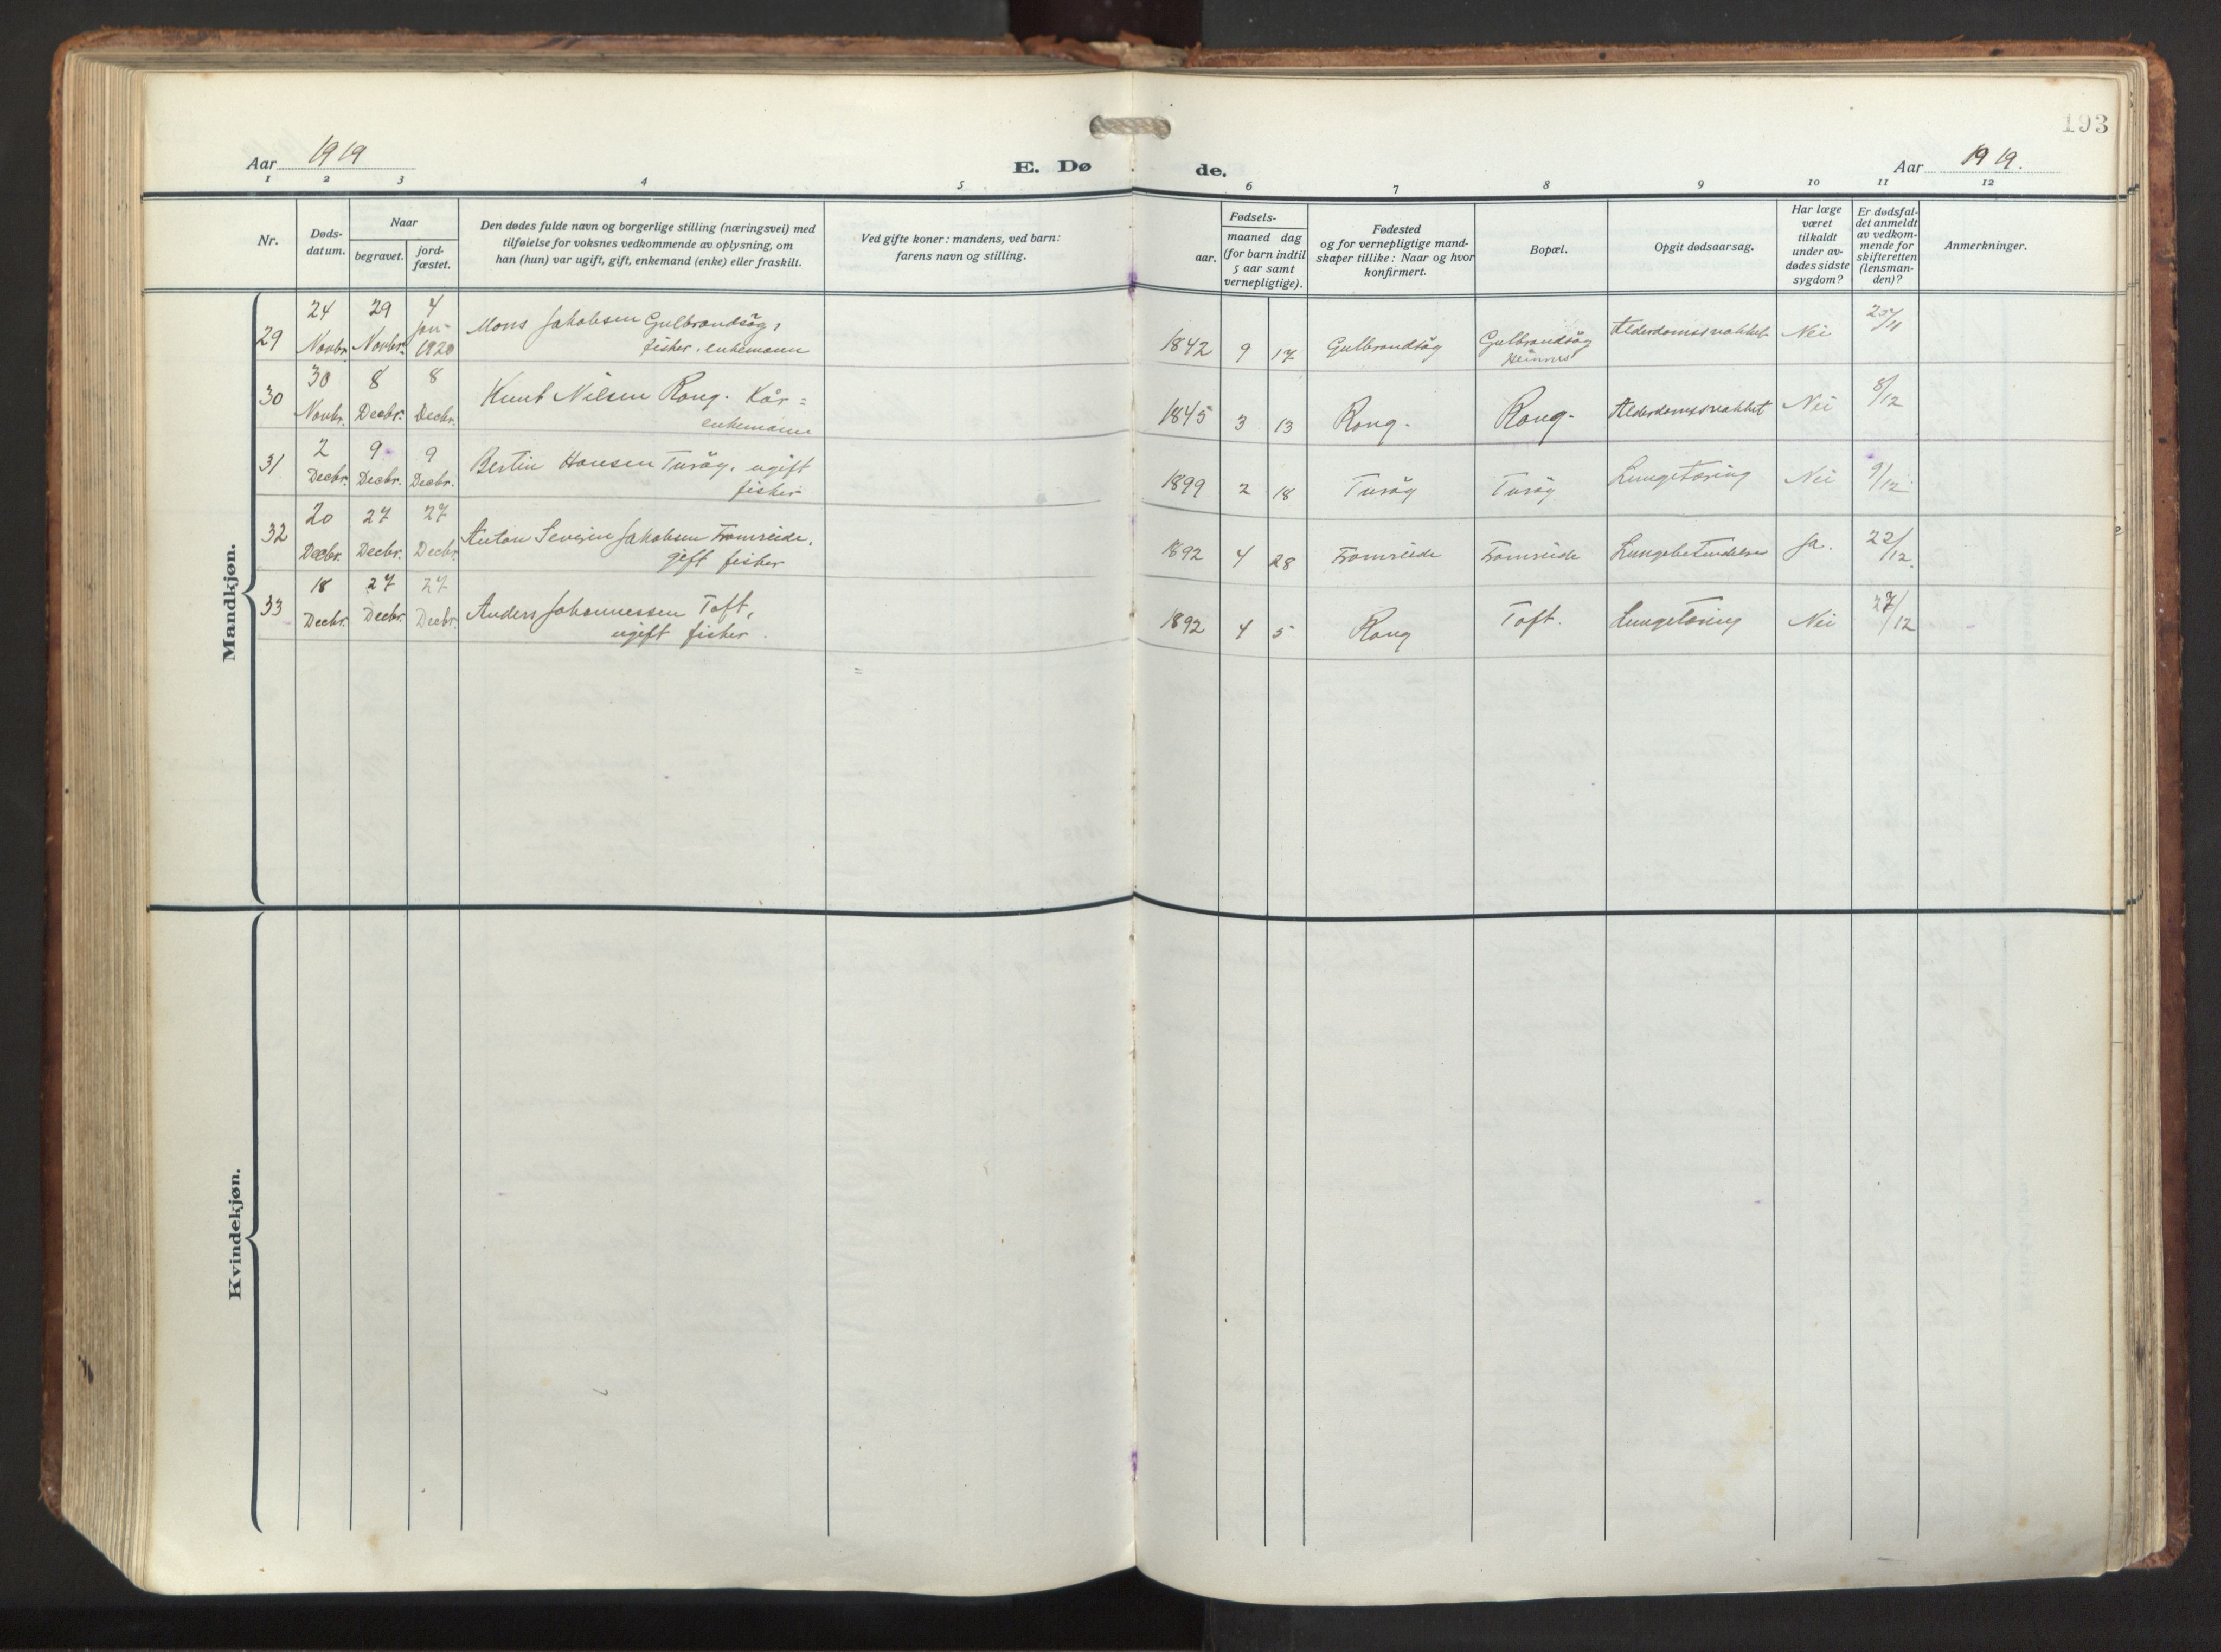 193
Aar 1919
E. Dø de.
Aar 1919.
1 2 3 4 5 6 7 8 9 10 11 12
Nr.
Døds-
datum.
Naar
begravet.
jord-
fæstet.
Den dødes fulde navn og borgerlige stilling (næringsvei) med
tilføielse for voksnes vedkommende av oplysning, om
han (hun) var ugift, gift, enkemand (enke) eller fraskilt.
Ved gifte koner: mandens, ved barn:
farens navn og stilling.
Fødsels-
aar.
maaned dag
(for barn indtil
5 aar samt
vernepligtige).
Fødested
og for vernepligtige mand-
skaper tillike: Naar og hvor
konfirmert.
Bopæl.
Opgit dødsaarsag.
Har læge
været
tilkaldt
under av-
dødes sidste
sygdom?
Er dødsfal-
det anmeldt
av vedkom-
mende for
skifteretten
(lensman-
den)?
Anmerkninger.
Mandkjøn.
29
24
Novbr.
29
Novbr.
4
Jan-
1920
Mons Jakobsen Gulbrandsøy,
fisker. enkemann
1842 9 17
Gulbrandsøy
Gulbrandsøy
Alderdomssvakhet
Nei
25/11
30
30
Novbr.
8
Decbr.
8
Decbr.
Knut Nilsen Rong. Kår=
enkemann
1845 3 13
Rong.
Rong.
Alderdomssvakhet
Nei
8/12
31
2
Decbr.
9
Decbr.
9
Decbr.
Bertin Hansen Turøy, ugift
fisker
1899 2 18
Turøy
Turøy
Lungetæring
Nei
9/12
32
20
Decbr.
27
Decbr.
27
Decbr.
Anton Severin Jakobsen Fromreide.
gift fisker
1892 4 28
Fromreide
Fromreide
Lungebetændelse
Ja.
22/12.
33
18
Decbr.
27
Decbr.
27
Decbr.
Anders Johannessen Toft,
ugift fisker.
1892 4 5
Rong
Toft.
Lungetæring
Nei
27/12
Kvindekjøn.